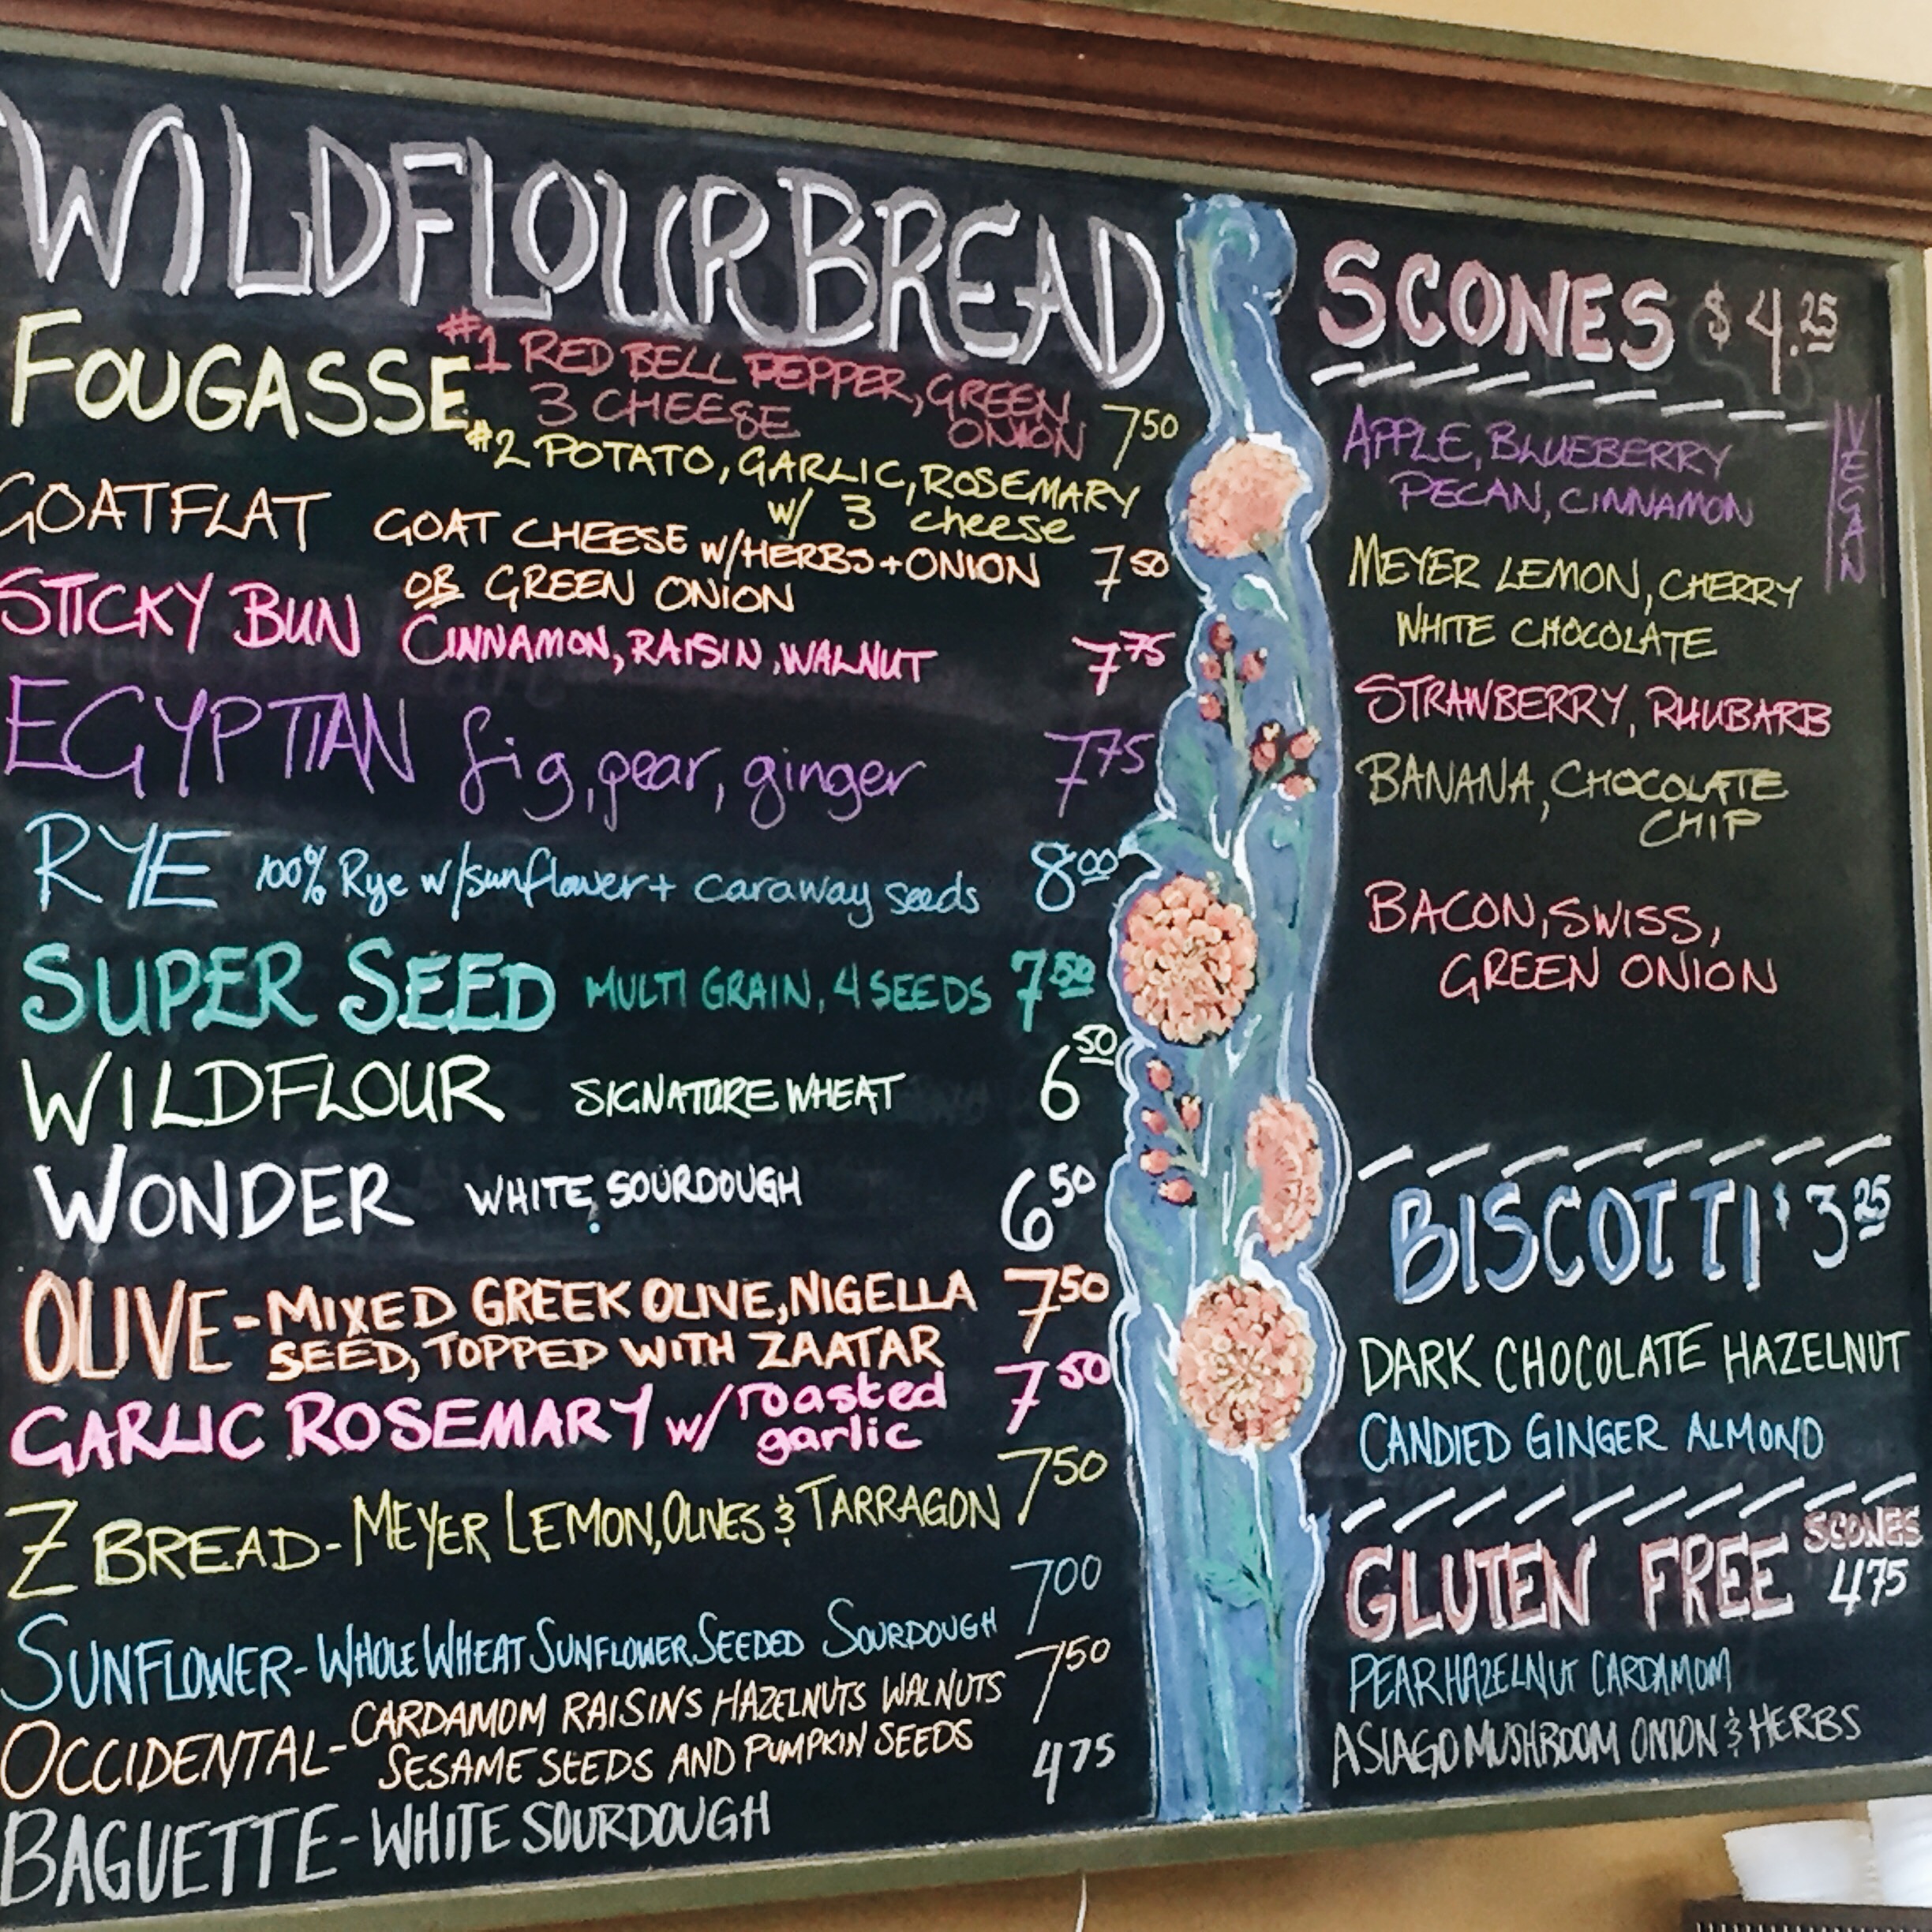 WILDFLOUR BREAD
FOUGASSE #1 RED BELL PEPPER, GREEN
3 CHEESE ONION 7 50
#2 POTATO, GARLIC, ROSEMARY
w/ 3 cheese
GOATFLAT GOAT CHEESE w/HERBS + ONION 7 50
OR GREEN ONION
STICKY BUN CINNAMON, RAISIN, WALNUT 7 75
EGYPTIAN fig, pear, ginger 7 75
RYE 100% Rye w/sunflower + caraway seeds 8 00
SUPER SEED MULTI GRAIN, 4 SEEDS 7 50
WILDFLOUR SIGNATURE WHEAT 6 50
WONDER WHITE SOURDOUGH 6 50
OLIVE - MIXED GREEK OLIVE, NIGELLA 7 50
SEED, TOPPED WITH ZAATAR
GARLIC ROSEMARY w/ roasted 7 50
garlic
Z BREAD - MEYER LEMON, OLIVES & TARRAGON 7 50
SUNFLOWER - WHOLE WHEAT SUNFLOWER SEEDED SOURDOUGH 7 00
OCCIDENTAL - CARDAMOM RAISINS HAZELNUTS WALNUTS 7 50
SESAME SEEDS AND PUMPKIN SEEDS
BAGUETTE - WHITE SOURDOUGH 4 75
SCONES $4.25
APPLE, BLUEBERRY
PECAN, CINNAMON
VEGAN
MEYER LEMON, CHERRY
WHITE CHOCOLATE
STRAWBERRY, RHUBARB
BANANA, CHOCOLATE
CHIP
BACON, SWISS,
GREEN ONION
BISCOTTI $3 25
DARK CHOCOLATE HAZELNUT
CANDIED GINGER ALMOND
GLUTEN FREE SCONES
4 75
PEAR HAZELNUT CARDAMOM
ASIAGO MUSHROOM ONION & HERBS